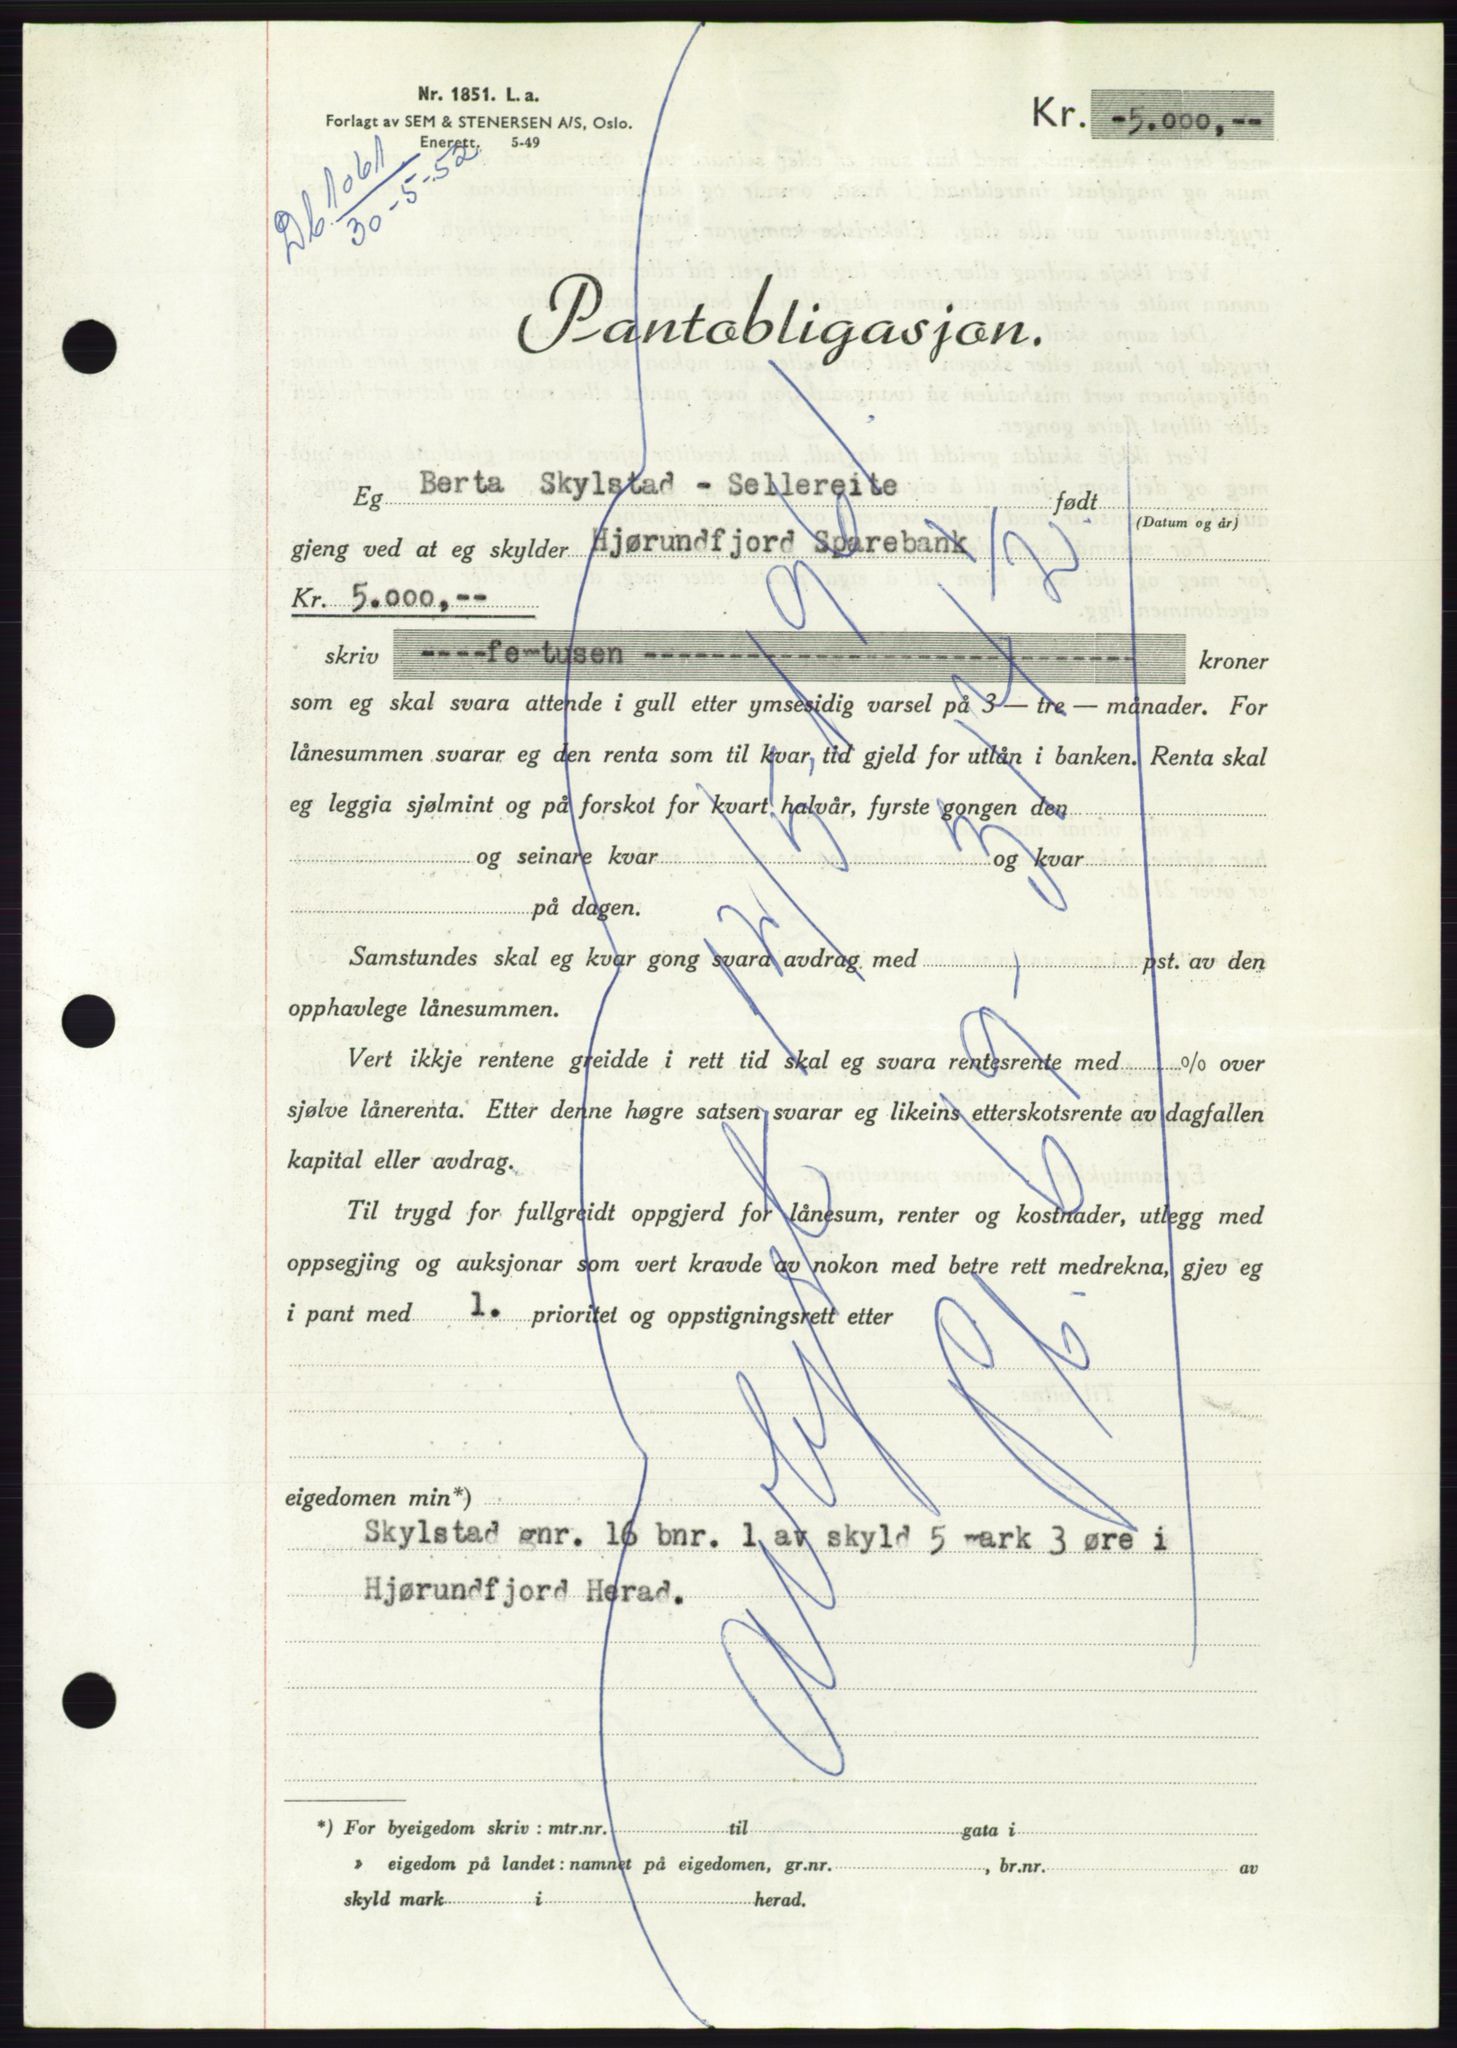 Nr. 1851. L. a.
Forlagt av SEM & STENERSEN A/S, Oslo.
Enerett. 5-49
Kr. -5.000,--
Db. 1061
30-5-52
Pantobligasjon.
Eg Berta Skylstad - Sellereite født
(Datum og år)
gjeng ved at eg skylder Hjørundfjord Sparebank
Kr. 5.000,--
skriv ----fe-tusen ---------------------------- kroner
som eg skal svara attende i gull etter ymsesidig varsel på 3 — tre — månader. For
lånesummen svarar eg den renta som til kvar tid gjeld for utlån i banken. Renta skal
eg leggja sjølmint og på forskot for kvart halvår, fyrste gongen den
og seinare kvar og kvar
på dagen.
Samstundes skal eg kvar gong svara avdrag med pst. av den
opphavlege lånesummen.
Vert ikkje rentene greidde i rett tid skal eg svara rentesrente med % over
sjølve lånerenta. Etter denne høgre satsen svarar eg likeins etterskotsrente av dagfallen
kapital eller avdrag.
Til trygd for fullgreidt oppgjerd for lånesum, renter og kostnader, utlegg med
oppsegjing og auksjonar som vert kravde av nokon med betre rett medrekna, gjev eg
i pant med 1. prioritet og oppstigningsrett etter
eigedomen min*)
Skylstad gnr. 16 bnr. 1 av skyld 5 mark 3 øre i
Hjørundfjord Herad.
avlyst
*) For byeigedom skriv : mtr.nr. til gata i
» eigedom på landet : namnet på eigedomen, gr.nr. , br.nr. av
skyld mark i herad.